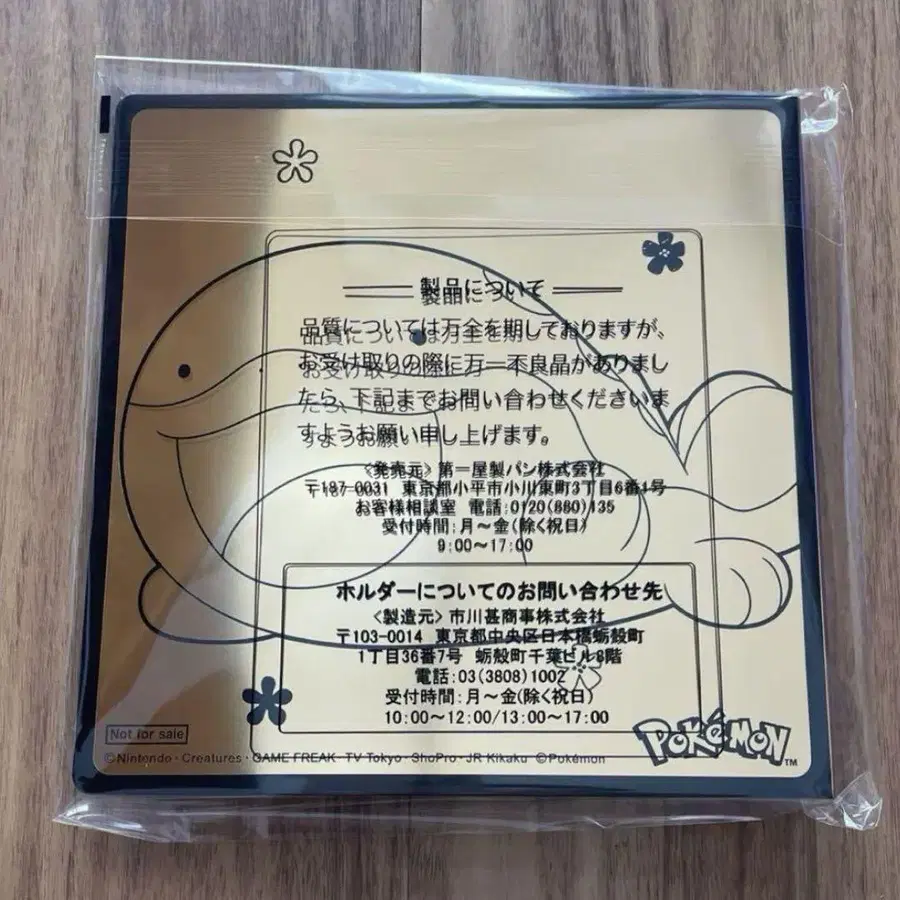 製品について
品質については万全を期しておりますが、
お受け取りの際に万一不良品がありまし
たら、下記までお問い合わせくださいま
すようお願い申し上げます。
〈発売元〉第一屋製パン株式会社
〒187-0031 東京都小平市小川東町3丁目6番1号
お客様相談室 電話:0120(880)135
受付時間:月〜金(除く祝日)
9:00〜17:00
ホルダーについてのお問い合わせ先
〈製造元〉市川甚商事株式会社
〒103-0014 東京都中央区日本橋蛎殻町
1丁目36番7号 蛎殻町千葉ビル8階
電話:03(3808)1002
受付時間:月〜金(除く祝日)
10:00〜12:00/13:00〜17:00
Not for sale
POKéMON™
©Nintendo・Creatures・GAME FREAK・TV Tokyo・ShoPro・JR Kikaku ©Pokémon